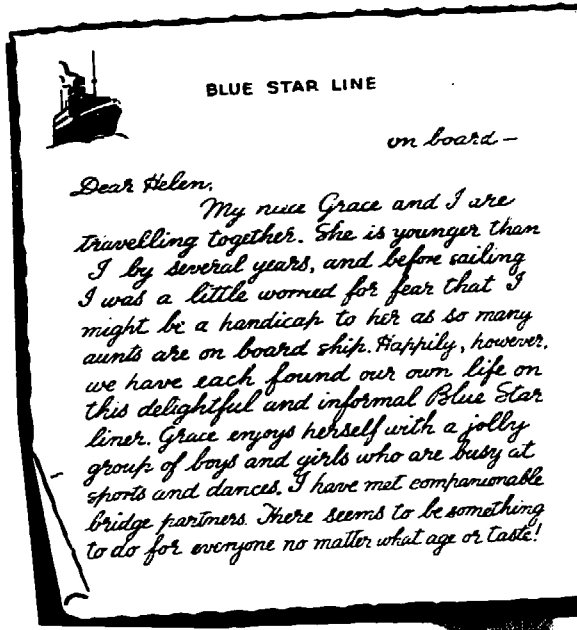 BLUE STAR LINE
on board —
Dear Helen,
My niece Grace and I are
travelling together. She is younger than
I by several years, and before sailing
I was a little worried for fear that I
might be a handicap to her as so many
aunts are on board ship. Happily, however,
we have each found our own life on
this delightful and informal Blue Star
liner. Grace enjoys herself with a jolly
group of boys and girls who are busy at
sports and dances. I have met companionable
bridge partners. There seems to be something
to do for everyone no matter what age or taste!